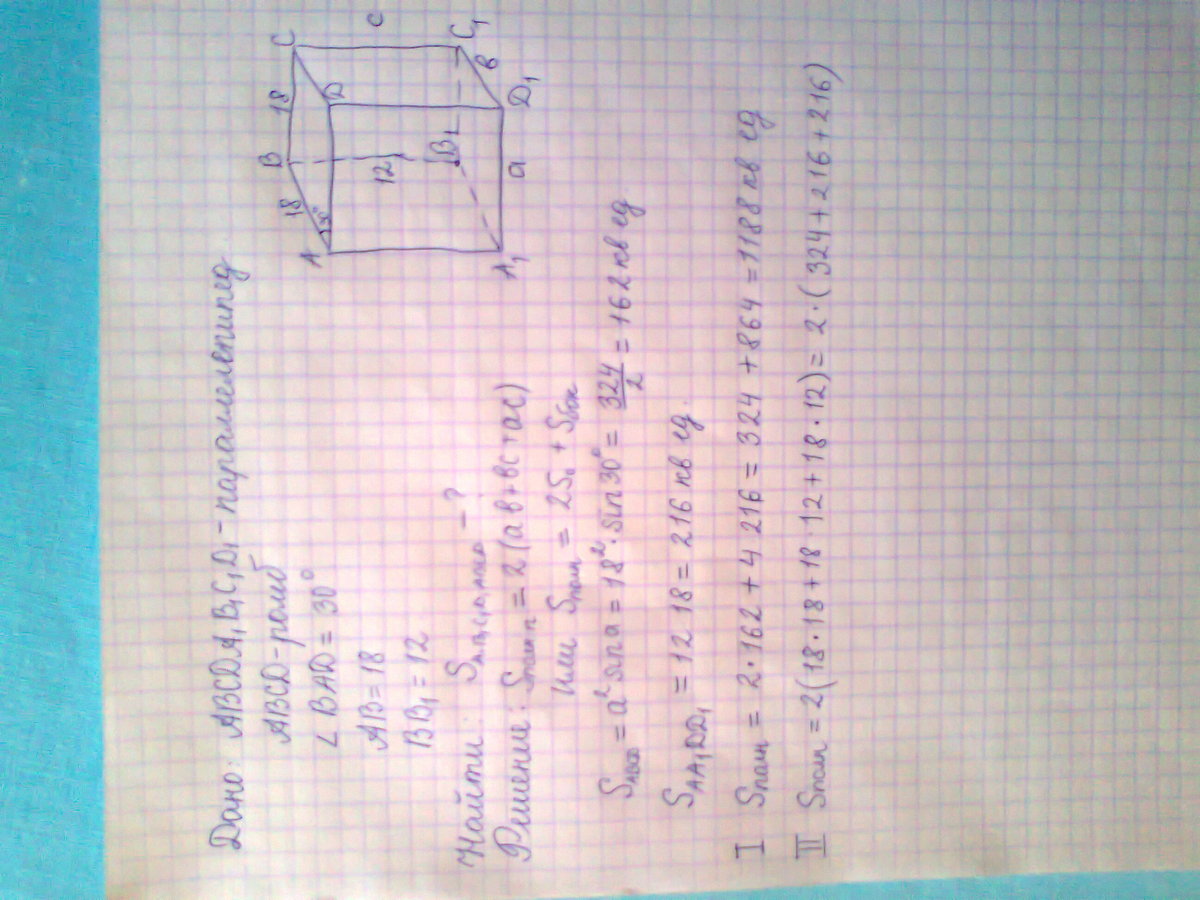 Дано: ABCDA₁B₁C₁D₁ - параллелепипед
ABCD - ромб
∠BAD = 30°
AB = 18
BB₁ = 12
Найти: - ?
Решение: Sполн = 2(ab + bc + ac)
Или Sполн = 2S₀ + Sбок
SABCD = a² sin a = 18² · sin 30° = 324/2 = 162 кв ед
SAA₁DD₁ = 12 18 = 216 кв ед.
I Sполн = 2 · 162 + 4 216 = 324 + 864 = 1188 кв ед
II Sполн = 2(18 · 18 + 18 · 12 + 18 · 12) = 2 · (324 + 216 + 216)
B
18
C
c
18
30°
A
D
12
B₁
C₁
в
A₁
a
D₁